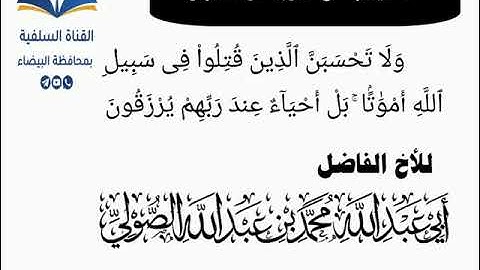 القناة السلفية
بمحافظة البيضاء
وَلَا تَحْسَبَنَّ ٱلَّذِينَ قُتِلُوا۟ فِى سَبِيلِ
ٱللَّهِ أَمْوَٰتًۢا ۚ بَلْ أَحْيَآءٌ عِندَ رَبِّهِمْ يُرْزَقُونَ
للأخ الفاضل
أَبِي عَبْدِ اللَّهِ مُحَمَّدِ بْنِ عَبْدِ اللَّهِ الصُّولِيِّ